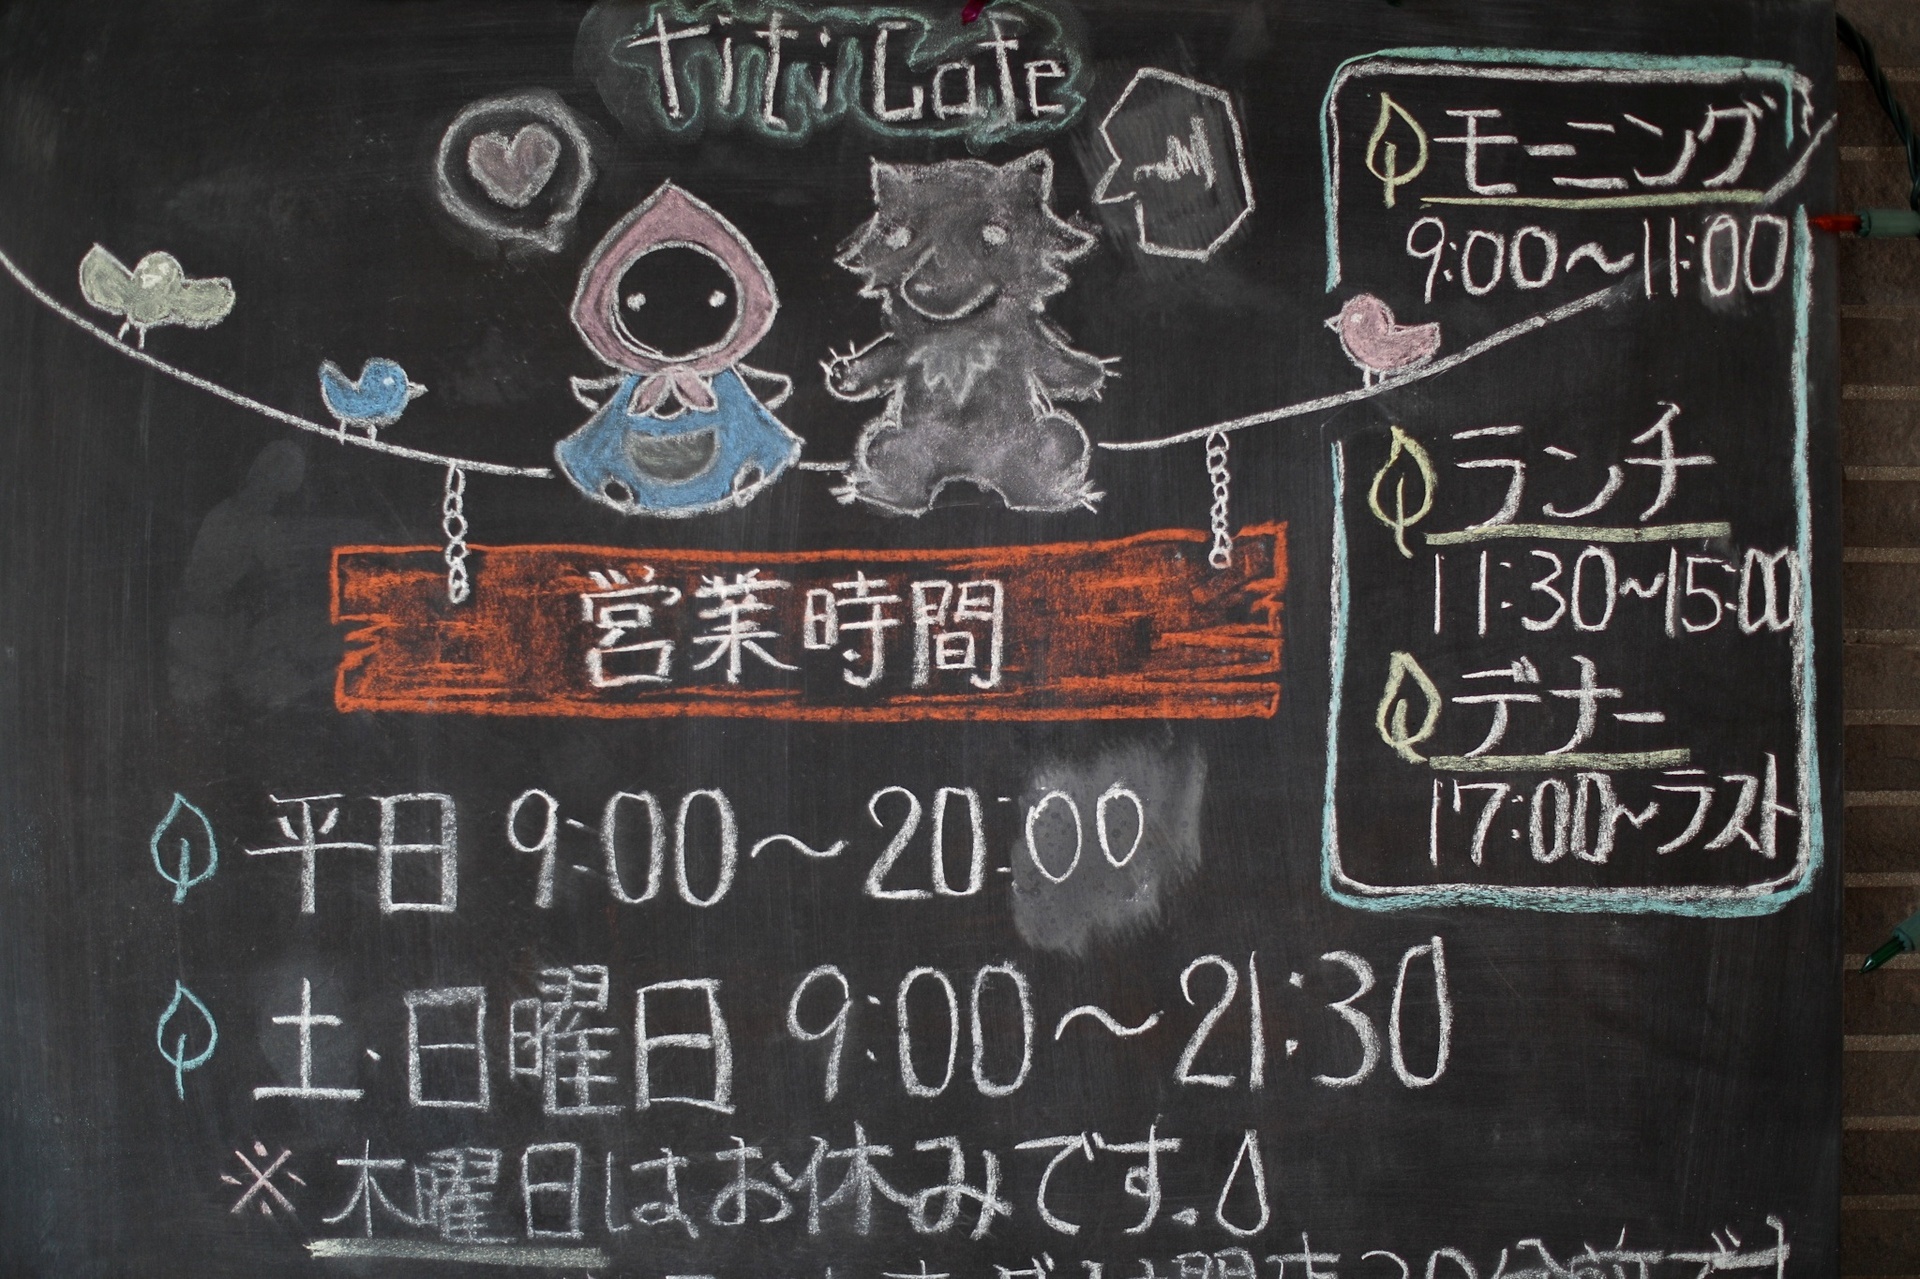 titi Cafe
モーニング
9:00～11:00
ランチ
11:30～15:00
デナー
17:00～ラスト
営業時間
平日 9:00～20:00
土・日曜日 9:00～21:30
※木曜日はお休みです。